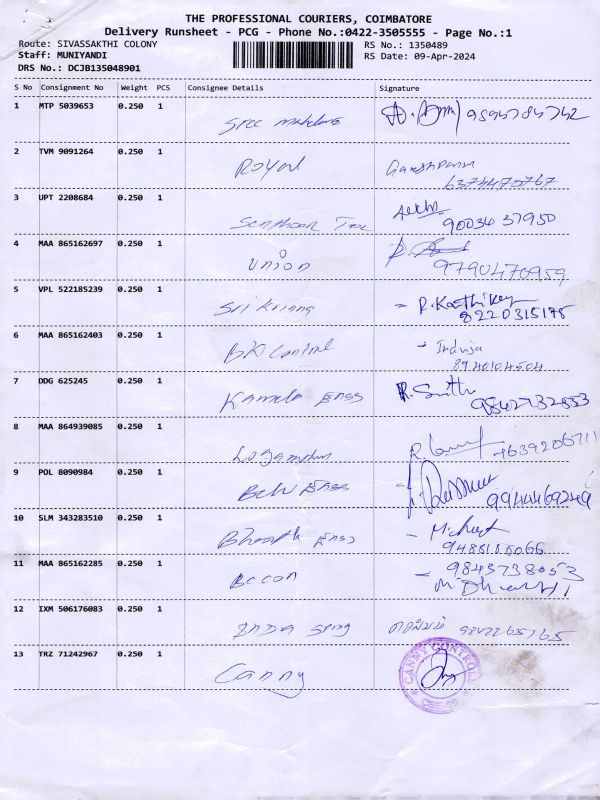 THE PROFESSIONAL COURIERS, COIMBATORE
Delivery Runsheet - PCG - Phone No.:0422-3505555 - Page No.:1
Route: SIVASSAKTHI COLONY RS No.: 1350489
Staff: MUNIYANDI RS Date: 09-Apr-2024
DRS No.: DCJB135048901
S No Consignment No Weight PCS Consignee Details Signature
1 MTP 5039653 0.250 1
2 TVM 9091264 0.250 1 Royal
6374470767
3 UPT 2208684 0.250 1
9003437950
4 MAA 865162697 0.250 1 Union
9790470959
5 VPL 522185239 0.250 1 Sri Krisna - P. Karthikey
8220315175
6 MAA 865162403 0.250 1 - Induja
8940104504
7 DDG 625245 0.250 1 Kamala Engg R. Smith
9842732853
8 MAA 864939085 0.250 1
9 POL 8090984 0.250 1 Engg
9944469249
10 SLM 343283510 0.250 1 Bharath Engg
11 MAA 865162285 0.250 1 Bacon - 9843738053
12 IXM 506176083 0.250 1 India Spring 9842265765
13 TRZ 71242967 0.250 1 Canny CANNY CONTROLS